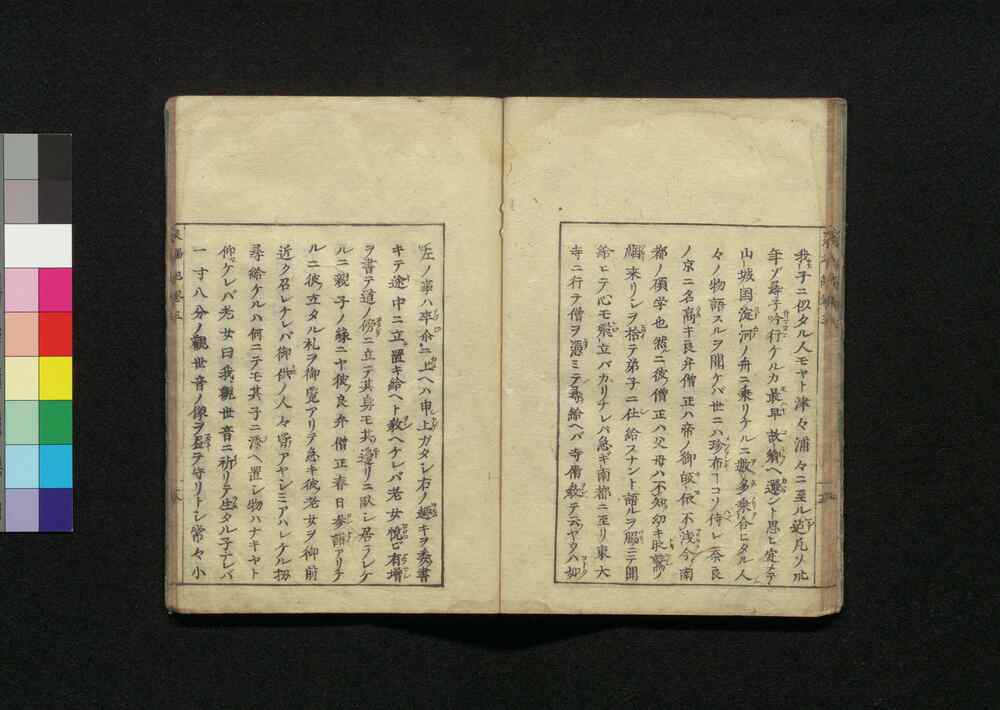 我子ニ似タル人モヤト津々浦々ニ至ル迄凡ソ卅
年ゾ尋子吟行ケルカ最早故郷ヘ還ント思ヒ定メテ
山城国淀河ノ舟ニ乗リケルニ数多乗合ヒタル人
々ノ物語スルヲ聞ケバ世ニハ珍布ヿコソ侍レ奈良
ノ京ニ名高キ良弁僧正ハ帝ノ御皈依不浅今南
都ノ碩学也然ニ彼僧正ハ父母ハ不知幼キ時鷲ノ
来リシヲ拾テ弟子ニ仕給スナント語ルヲ服ニテ聞
給ヒテ心モ飛立バカリナレバ急ギ南都ニ至リ東大
寺ニ行テ僧ヲ憑ミテ尋給ヘバ寺僧教テ云ヤウハ如
左ノ事ハ卒尓ニ上ヘハ申上ガタシ右ノ趣キヲ委書
キテ途中ニ立置キ給ヘト教ヘケレバ老女悦ビ有増
ヲ書テ道ノ傍ニ立テ其身モ其邊リニ臥シ居ラレケ
ルニ親子ノ縁ニヤ彼良弁僧正春日参詣アリケ
ルニ彼立タル札ヲ御覧アリテ急キ彼老女ヲ御前
近ク召レケレバ御供ノ人々常アヤシミアハレケル扨
尋給ケルハ何ニテモ其子ニ添ヘ置シ物ハナキヤト
仰ケレバ老女曰我観世音ニ祈リテ生タル子ナレバ
一寸八分ノ観世音ノ像ヲ テ守リトシ常々小